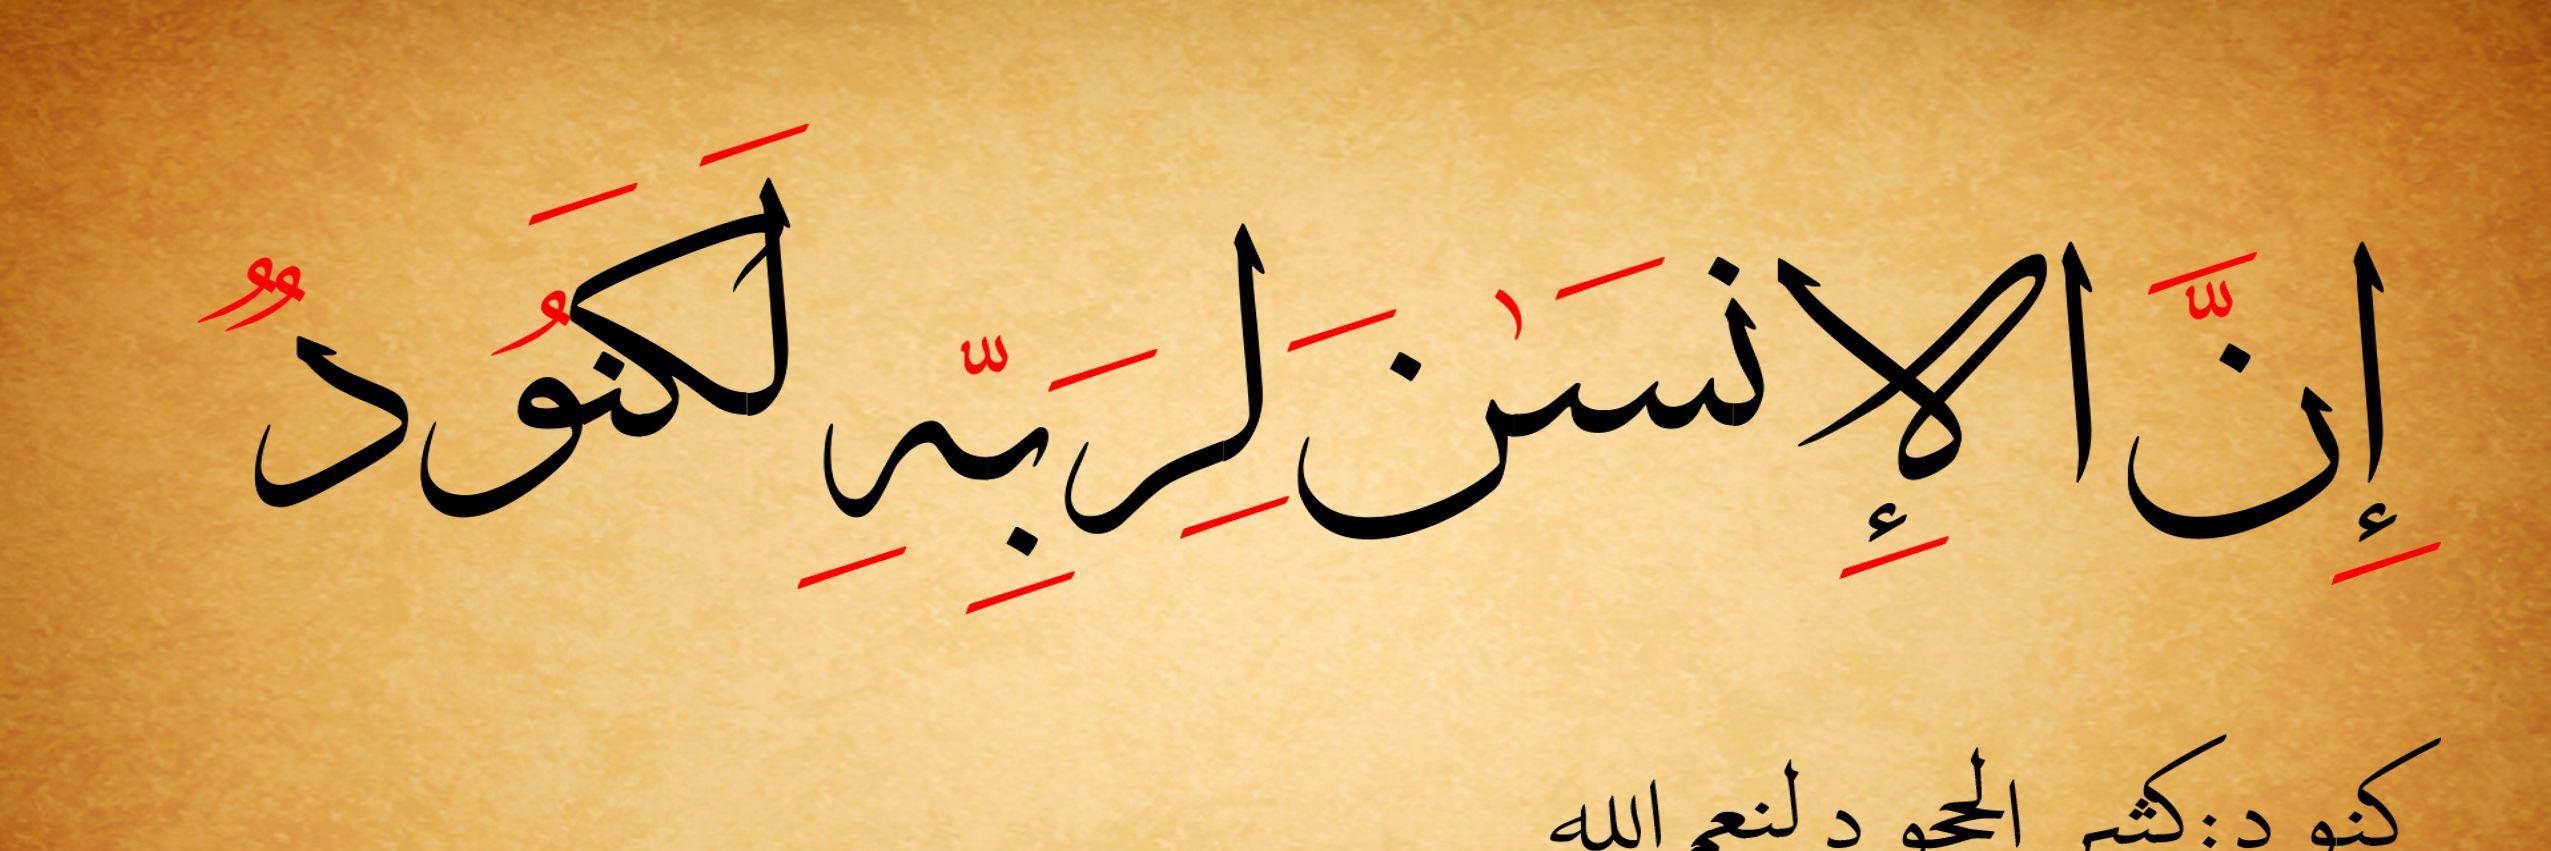 إِنَّ الإِنسَٰنَ لِرَبِّهِ لَكَنُودٌ
كنود: كثير الجحود لنعم الله